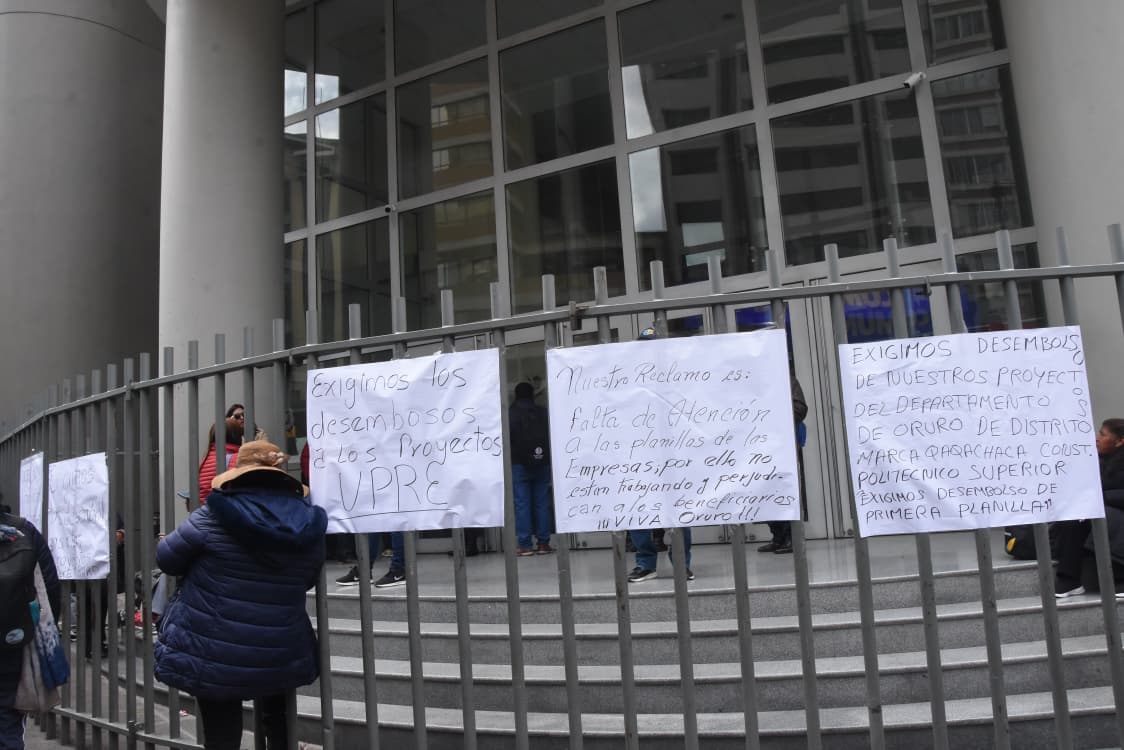 Exigimos los
desembosos
a los Proyectos
UPRE
Nuestro Reclamo es:
falta de Atención
a las planillas de las
Empresas; por ello no
estan trabajando y perjudi-
can a los beneficiarios
¡¡¡VIVA Oruro!!!
EXIGIMOS DESEMBOLSO
DE NUESTROS PROYECTOS
DEL DEPARTAMENTO
DE ORURO DE DISTRITO
MARCA QAQACHACA CONST.
POLITECNICO SUPERIOR
EXIGIMOS DESEMBOLSO DE
PRIMERA PLANILLA